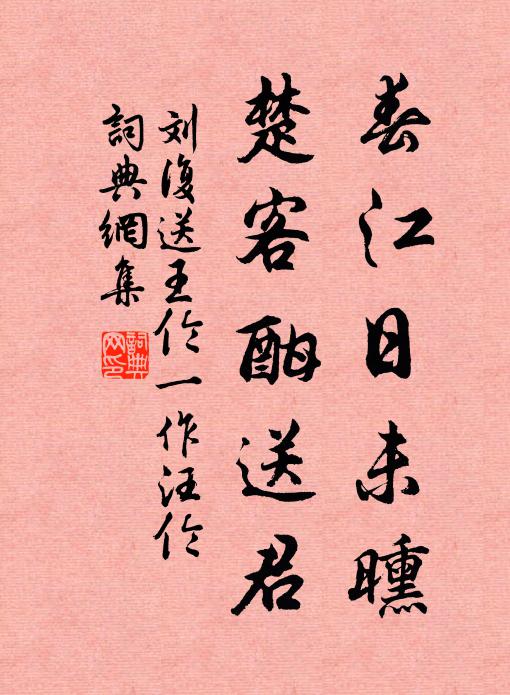 春江日未曛
楚客酣送君
刘復送王伦一作汪伦
詞典網集
詞典
网印